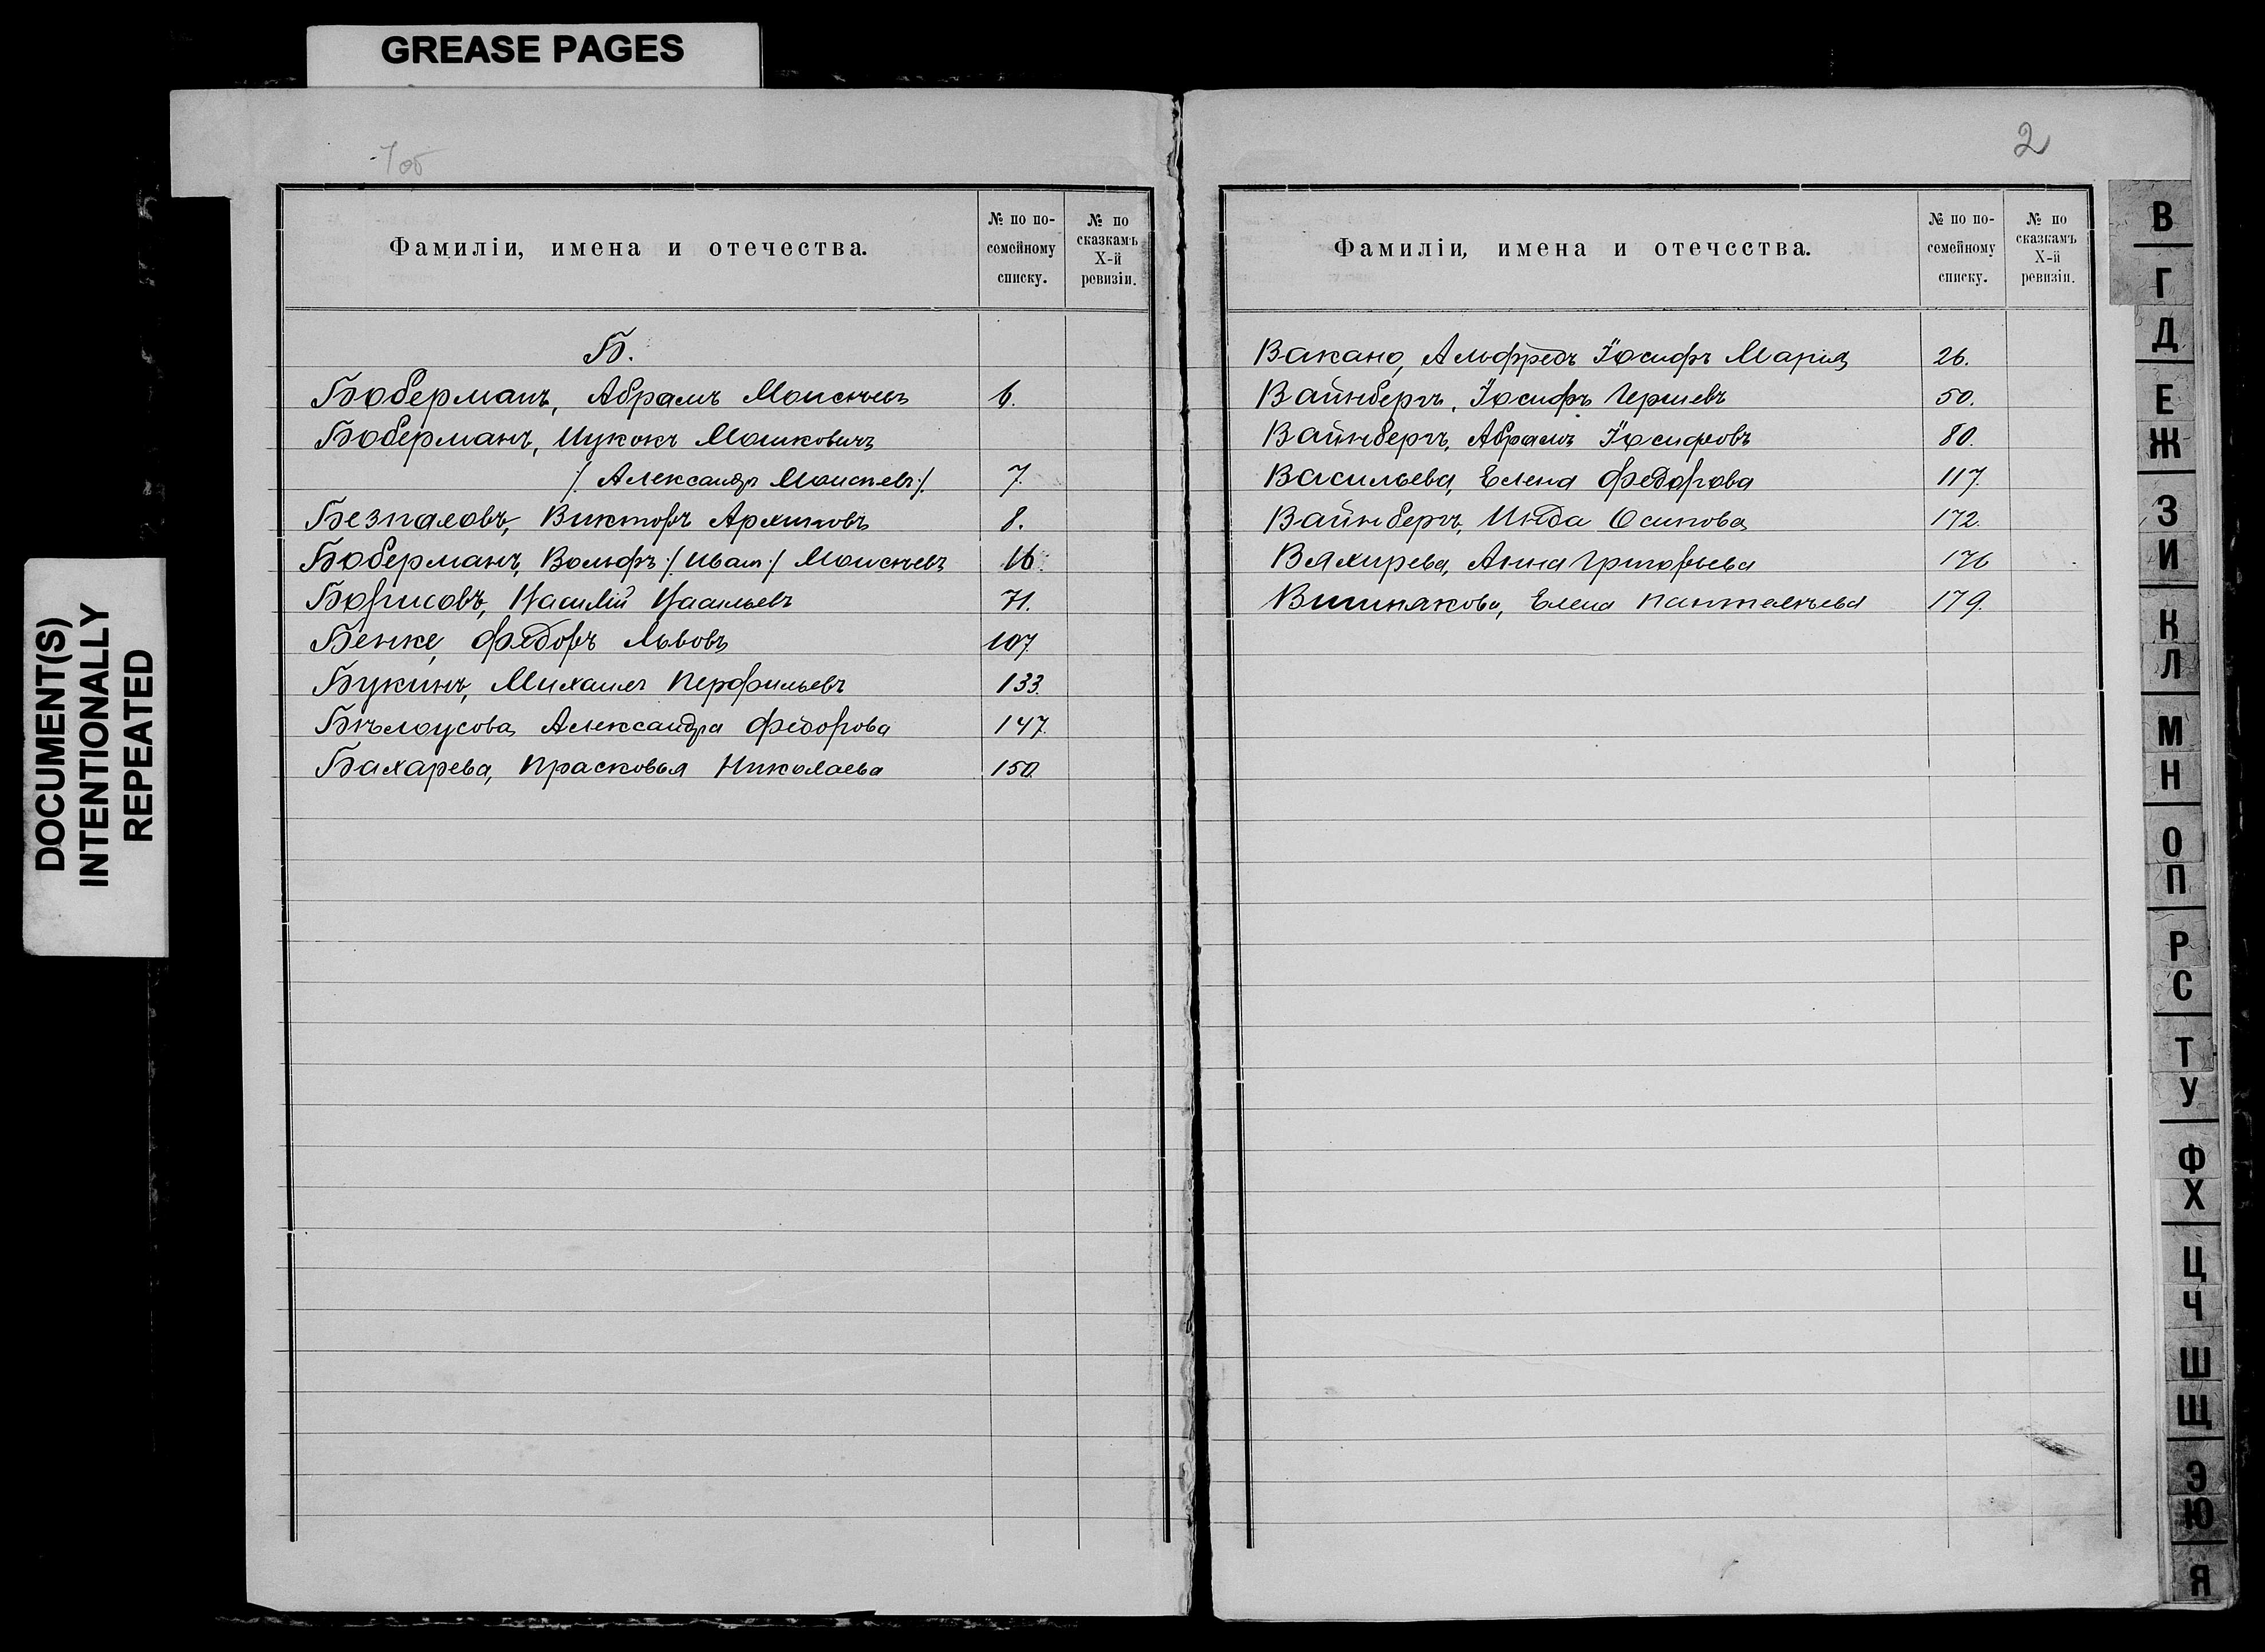 GREASE PAGES
DOCUMENT(S)
INTENTIONALLY
REPEATED
1об
Фамиліи, имена и отечества.
№ по по-
семейному
списку.
№ по
сказкамъ
X-й
ревизіи.
Б.
Боберманъ, Абрамъ Моисѣевъ 6.
Боберманъ, Ицкокъ Мошковичъ
/. Александръ Моисѣевъ ./ 7.
Безпаловъ, Викторъ Архиповъ 8.
Боберманъ, Вольфъ /. Иванъ ./ Моисѣевъ 16.
Борисовъ, Василій Васильевъ 71.
Бенке, Федоръ Львовъ 107.
Букинъ, Михаилъ Перфильевъ 133.
Бѣлоусова, Александра Федорова 147.
Бахарева, Прасковья Николаева 150.
2
Фамиліи, имена и отечества.
№ по по-
семейному
списку.
№ по
сказкамъ
X-й
ревизіи.
Вакано, Альфредъ Іосифъ Марія 26.
Вайнбергъ, Іосифъ Гершевъ 50.
Вайнбергъ, Абрамъ Іосифовъ 80.
Васильева, Елена Федорова 117.
Вайнбергъ, Осипова 172.
Вяхирева, Анна Григорьева 176
Вишнякова, Елена Пантелѣева 179.
В
Г
Д
Е
Ж
З
И
К
Л
М
Н
О
П
Р
С
Т
У
Ф
Х
Ц
Ч
Ш
Щ
Э
Ю
Я